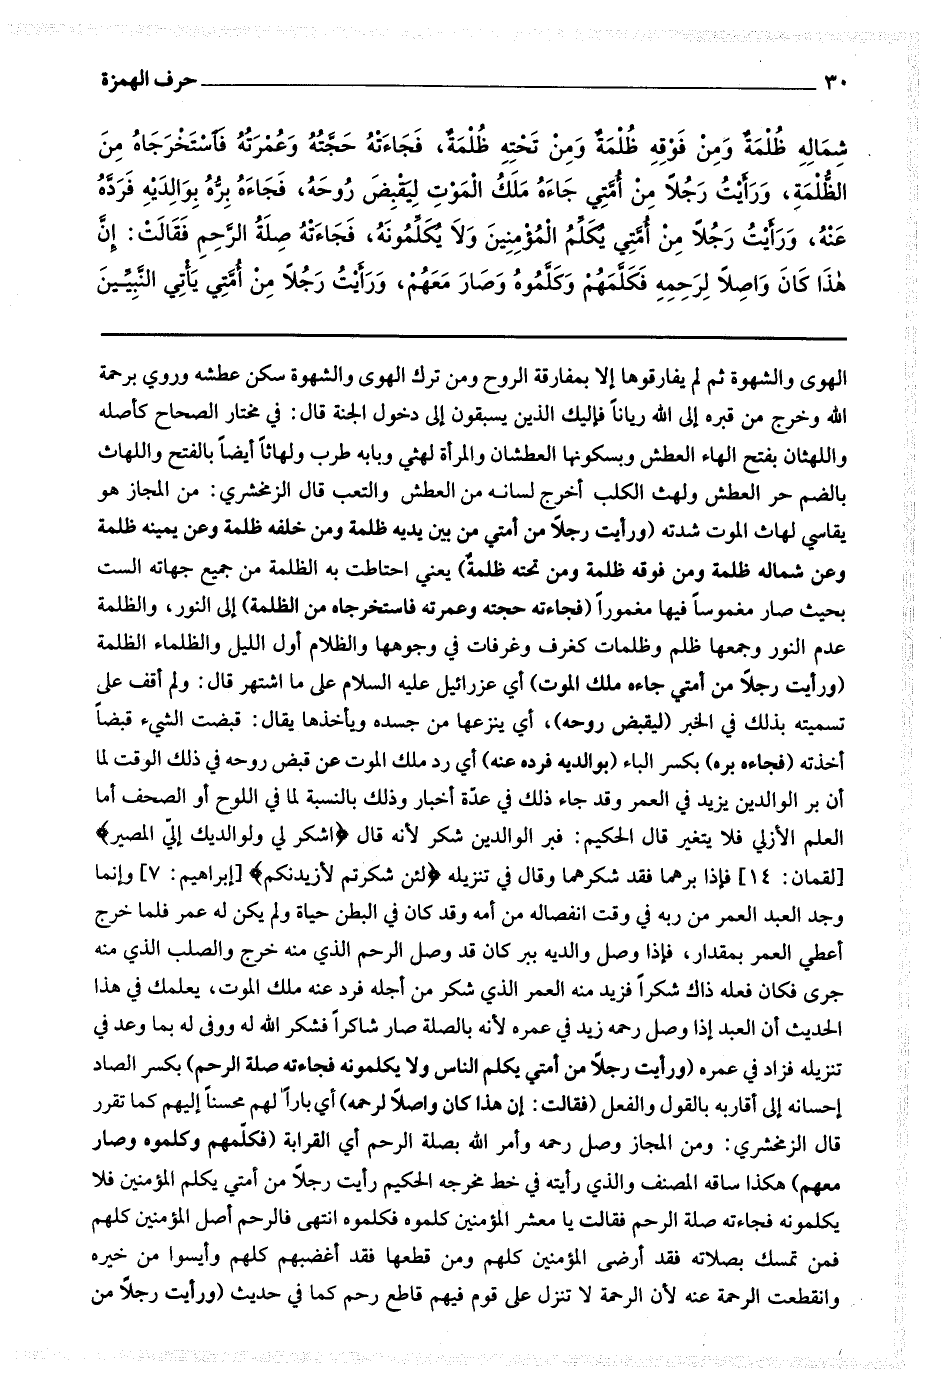 ٣٠ حرف الهمزة
شِمَالِهِ ظُلْمَةٌ وَمِنْ فَوْقِهِ ظُلْمَةٌ وَمِنْ تَحْتِهِ ظُلْمَةٌ، فَجَاءَتْهُ حَجَّتُهُ وَعُمْرَتُهُ فَاسْتَخْرَجَاهُ مِنَ
الظُّلْمَةِ، وَرَأَيْتُ رَجُلاً مِنْ أُمَّتِي جَاءَهُ مَلَكُ الْمَوْتِ لِيَقْبِضَ رُوحَهُ، فَجَاءَهُ بِرُّهُ بِوَالِدَيْهِ فَرَدَّهُ
عَنْهُ، وَرَأَيْتُ رَجُلاً مِنْ أُمَّتِي يُكَلِّمُ الْمُؤْمِنِينَ وَلَا يُكَلِّمُونَهُ، فَجَاءَتْهُ صِلَةُ الرَّحِمِ فَقَالَتْ: إِنَّ
هٰذَا كَانَ وَاصِلاً لِرَحِمِهِ فَكَلَّمَهُمْ وَكَلَّمُوهُ وَصَارَ مَعَهُمْ، وَرَأَيْتُ رَجُلاً مِنْ أُمَّتِي يَأْتِي النَّبِيِّينَ
الهوى والشهوة ثم لم يفارقوها إلا بمفارقة الروح ومن ترك الهوى والشهوة سكن عطشه وروي برحمة
الله وخرج من قبره إلى الله رياناً فإليك الذين يسبقون إلى دخول الجنة قال: في مختار الصحاح كأصله
واللهثان بفتح الهاء العطش وبسكونها العطشان والمرأة لهثي وبابه طرب ولهاثاً أيضاً بالفتح واللهاث
بالضم حر العطش ولهث الكلب أخرج لسانه من العطش والتعب قال الزمخشري: من المجاز هو
يقاسي لهاث الموت شدته (ورأيت رجلاً من أمتي من بين يديه ظلمة ومن خلفه ظلمة وعن يمينه ظلمة
وعن شماله ظلمة ومن فوقه ظلمة ومن تحته ظلمةٌ) يعني احتاطت به الظلمة من جميع جهاته الست
بحيث صار مغموساً فيها مغموراً (فجاءته حجته وعمرته فاستخرجاه من الظلمة) إلى النور، والظلمة
عدم النور وجمعها ظلم وظلمات كغرف وغرفات في وجوهها والظلام أول الليل والظلماء الظلمة
(ورأيت رجلاً من أمتي جاءه ملك الموت) أي عزرائيل عليه السلام على ما اشتهر قال: ولم أقف على
تسميته بذلك في الخبر (ليقبض روحه)، أي ينزعها من جسده ويأخذها يقال: قبضت الشيء قبضاً
أخذته (فجاءه بره) بكسر الباء (بوالديه فرده عنه) أي رد ملك الموت عن قبض روحه في ذلك الوقت لما
أن بر الوالدين يزيد في العمر وقد جاء ذلك في عدّة أخبار وذلك بالنسبة لما في اللوح أو الصحف أما
العلم الأزلي فلا يتغير قال الحكيم: فبر الوالدين شكر لأنه قال ﴿اشكر لي ولوالديك إليّ المصير﴾
[لقمان: ١٤] فإذا برهما فقد شكرهما وقال في تنزيله ﴿لئن شكرتم لأزيدنكم﴾ [إبراهيم: ٧] وإنما
وجد العبد العمر من ربه في وقت انفصاله من أمه وقد كان في البطن حياة ولم يكن له عمر فلما خرج
أعطي العمر بمقدار، فإذا وصل والديه ببر كان قد وصل الرحم الذي منه خرج والصلب الذي منه
جرى فكان فعله ذاك شكراً فزيد منه العمر الذي شكر من أجله فرد عنه ملك الموت، يعلمك في هذا
الحديث أن العبد إذا وصل رحمه زيد في عمره لأنه بالصلة صار شاكراً فشكر الله له ووفى له بما وعد في
تنزيله فزاد في عمره (ورأيت رجلاً من أمتي يكلم الناس ولا يكلمونه فجاءته صلة الرحم) بكسر الصاد
إحسانه إلى أقاربه بالقول والفعل (فقالت: إن هذا كان واصلاً لرحمه) أي باراً لهم محسناً إليهم كما تقرر
قال الزمخشري: ومن المجاز وصل رحمه وأمر الله بصلة الرحم أي القرابة (فكلّمهم وكلموه وصار
معهم) هكذا ساقه المصنف والذي رأيته في خط مخرجه الحكيم رأيت رجلاً من أمتي يكلم المؤمنين فلا
يكلمونه فجاءته صلة الرحم فقالت يا معشر المؤمنين كلموه فكلموه انتهى فالرحم أصل المؤمنين كلهم
فمن تمسك بصلاته فقد أرضى المؤمنين كلهم ومن قطعها فقد أغضبهم كلهم وأيسوا من خيره
وانقطعت الرحمة عنه لأن الرحمة لا تنزل على قوم فيهم قاطع رحم كما في حديث (ورأيت رجلاً من